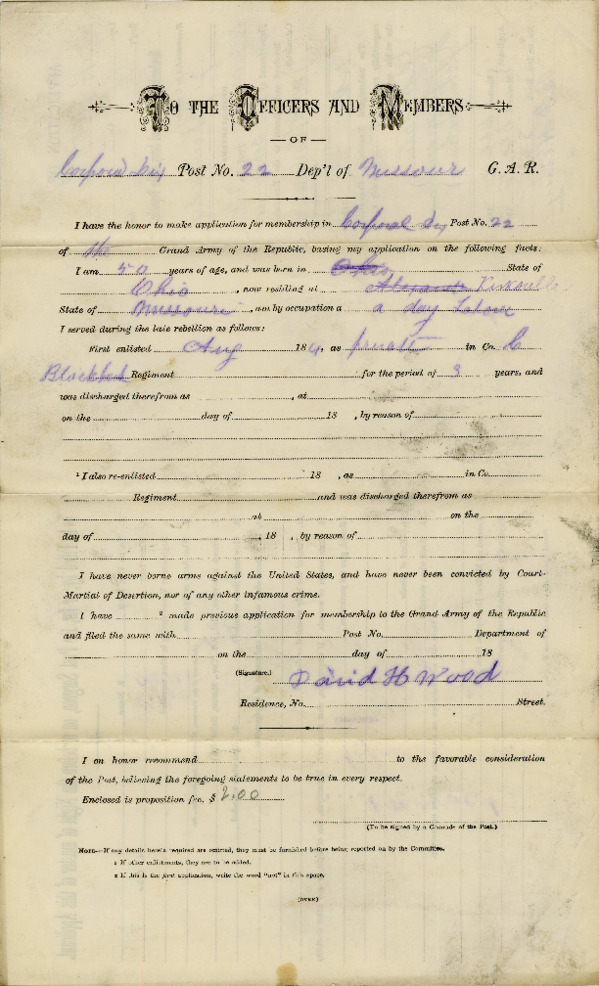 TO THE OFFICERS AND MEMBERS
OF
Corporal Dix Post No. 22 Dep'l of Missouri G. A. R.
I have the honor to make application for membership in Corporal Dix Post No. 22
of the Grand Army of the Republic, basing my application on the following facts:
I am 50 years of age, and was born in Ohio State of
Ohio, now residing at Kirksville
State of Missouri, am by occupation a day Labour
I served during the late rebellion as follows:
First enlisted Aug 186, as privatt in Co.
Regiment for the period of 3 years, and
was discharged therefrom as , at
on the day of 18 , by reason of
¹ I also re-enlisted 18 , as in Co.
Regiment and was discharged therefrom as
at on the
day of , 18 , by reason of
I have never borne arms against the United States, and have never been convicted by Court-
Martial of Desertion, nor of any other infamous crime.
I have ² made previous application for membership to the Grand Army of the Republic
and filed the same with Post No. Department of
on the day of 18
(Signature.) David H Wood
Residence, No. Street.
I on honor recommend to the favorable consideration
of the Post, believing the foregoing statements to be true in every respect.
Enclosed is proposition fee, $ 2.00
(To be signed by a Comrade of the Post.)
NOTE.—If any details herein required are omitted, they must be furnished before being reported on by the Committee.
1 If other enlistments, they are to be added.
2 If this is the first application, write the word "not" in this space.
(OVER)